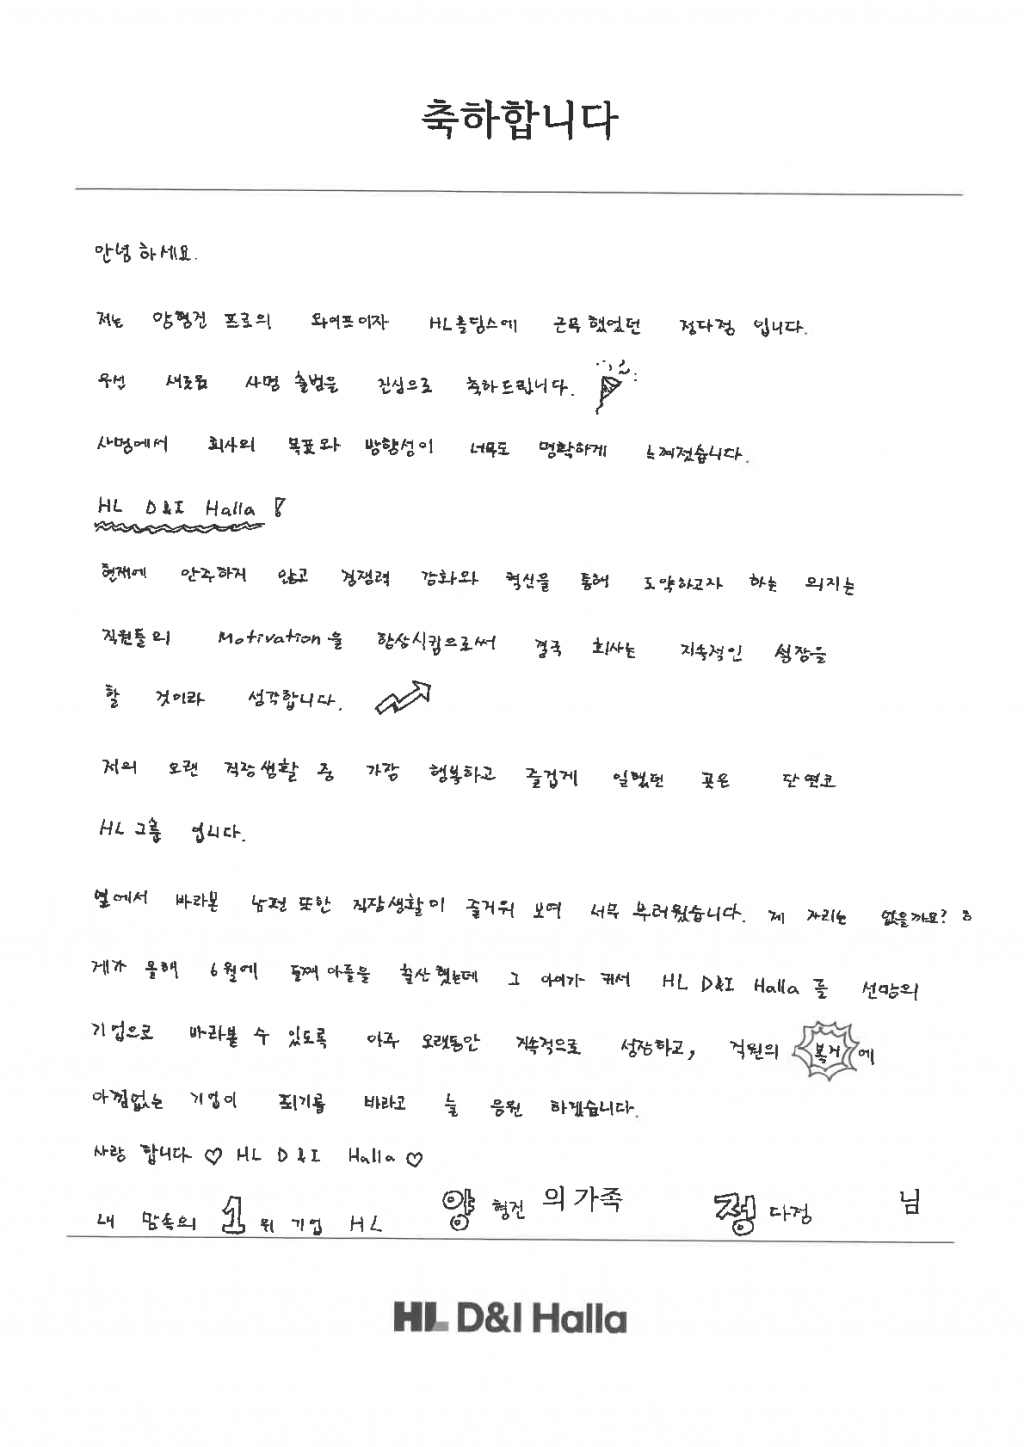 축하합니다
안녕하세요.
저는 양형건 프로의 와이프이자 HL홀딩스에 근무했었던 정다정 입니다.
우선 새로운 사명 출범을 진심으로 축하드립니다.
사명에서 회사의 목표와 방향성이 너무도 명확하게 느껴졌습니다.
HL D&I Halla !
현재에 안주하지 않고 경쟁력 강화와 혁신을 통해 도약하고자 하는 의지는
직원들의 Motivation을 향상시킴으로써 결국 회사는 지속적인 성장을
할 것이라 생각합니다.
저의 오랜 직장생활 중 가장 행복하고 즐겁게 일했던 곳은 단연코
HL그룹 입니다.
옆에서 바라본 남편 또한 직장생활이 즐거워 보여 너무 부러웠습니다. 제 자리는 없을까요?
제가 올해 6월에 둘째 아들을 출산했는데 그 아이가 커서 HL D&I Halla를 선망의
기업으로 바라볼 수 있도록 아주 오랫동안 지속적으로 성장하고, 직원의 복지에
아낌없는 기업이 되기를 바라고 늘 응원 하겠습니다.
사랑합니다 ♡ HL D&I Halla ♡
내 맘속의 1위 기업 HL 양형건 의 가족 정다정 님
HL D&I Halla